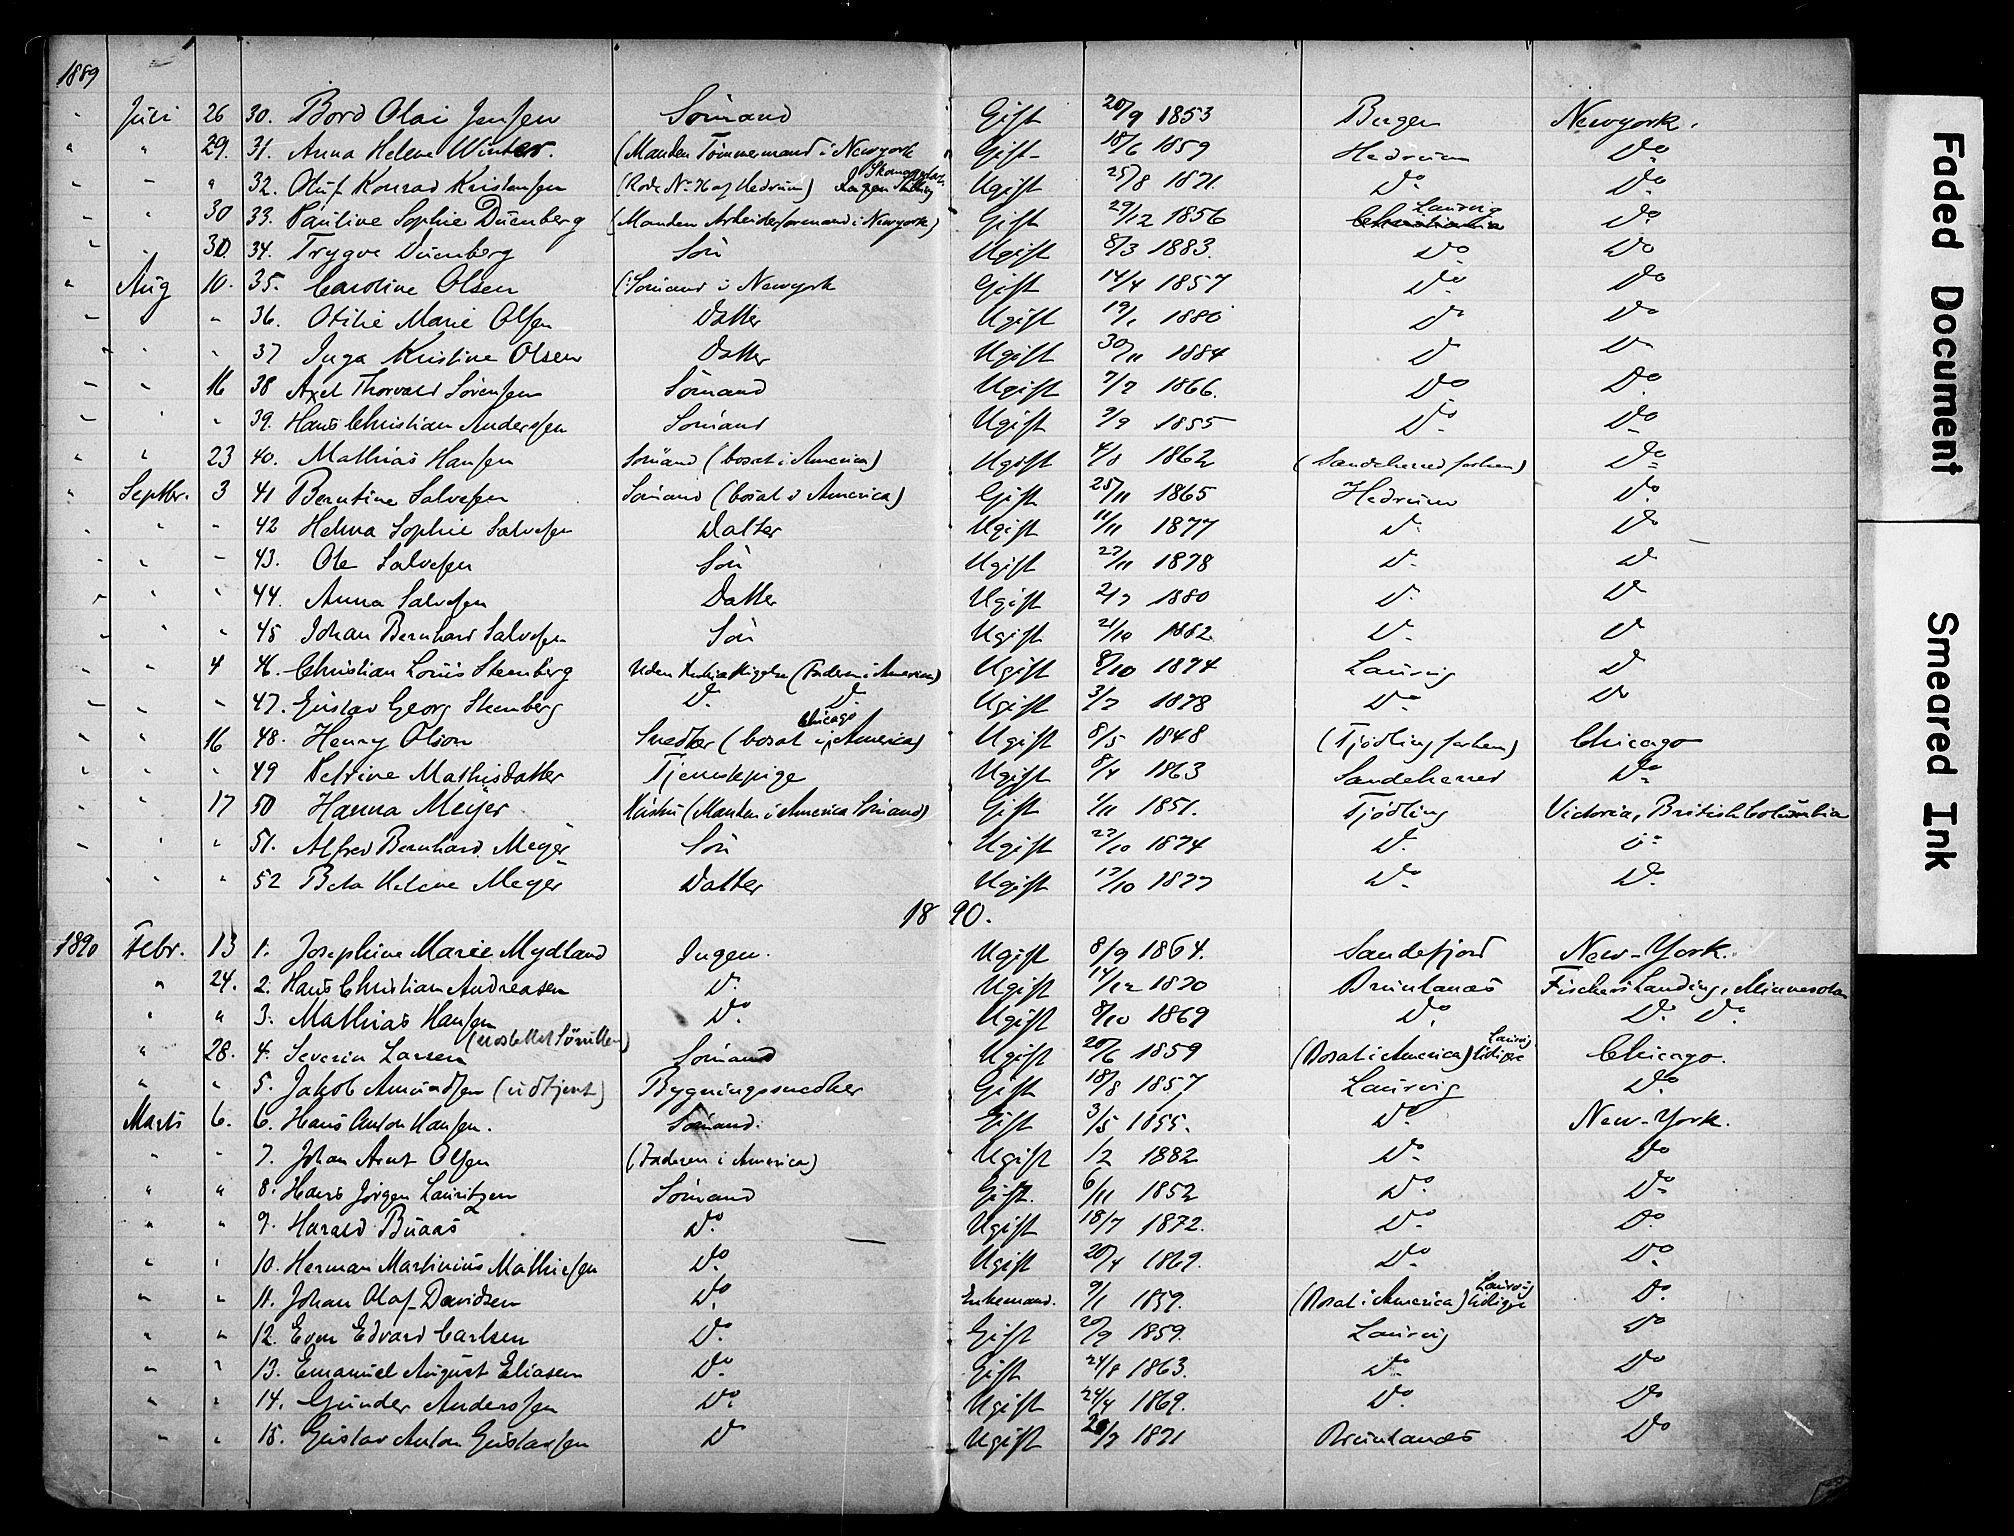 1889
" Juli 26 30. Bord Olai Jensen Sömand Gift 20/9 1853 Bergen Newyork.
" " 29. 31. Anna Helene Winter. (Manden Tömmermand i Newyork Gift 18/6 1859 Hedrum Do
" " " 32. Oluf Konrad Kristensen (Rode No 76 af Hedrum) Ingen Stilling Ugift 25/8 1871. Do Do
" " 30 33. Pauline Sophie Duenberg (Manden Arbeidsformand i Newyork) Gift 29/12 1856 Christiania Laurvig Do
" " 30. 34. Trygve Duenberg Sön Ugift 8/3 1883. Do Do
" Aug 10. 35. Caroline Olsen (Sömand i Newyork Gift 14/4 1857 Do Do
" " " 36. Otilie Marie Olsen Datter Ugift 19/1 1880 Do Do
" " " 37 Inga Kristine Olsen Datter Ugift 30/11 1884 Do Do
" " 16 38 Axel Thorvald Sörensen Sömand Ugift 7/7 1866. Do Do
" " " 39. Hans Christian Andersen Sömand Ugift 9/9 1855 Do Do
" " 23 40. Mathias Hansen Sömand (bosat i America) Ugift 4/8 1862 (Sandeherred forhen) Do
" Septbr. 3 41 Berntine Salvesen Sömand (bosat i America) Gift 25/11 1865 Hedrum Do
" " 42 Helma Sophie Salvesen Datter Ugift 11/11 1877 Do Do
" " " 43. Ole Salvesen Sön Ugift 27/11 1878 Do Do
" " " 44. Anna Salvesen Datter Ugift 2/7 1880 Do Do
" " " 45 Johan Bernhard Salvesen Sön Ugift 21/10 1882. Do Do
" " 4 46. Christian Louis Steenberg Uden (Faderen i America) Ugift 8/10 1874 Laurvig Do
" " " 47. Gustav Georg Steenberg Do Do Ugift 3/7 1878 Do Do
" " 16 48. Henry Olson Snedker (bosat i Chicago, America) Ugift 8/5 1848 (Tjödling forhen) Chicago
" " " 49 Petrine Mathisdatter Tjenestepige Ugift 8/4 1863 Sandeherred Do
" " 17 50 Hanna Meyer Hustru (Manden i America Sömand) Gift 1/11 1851. Tjödling Victoria, British Columbia
" " " 51. Alfred Bernhard Meyer Sön Ugift 27/10 1874 Do Do
" " " 52 Beta Helene Meyer Datter Ugift 17/10 1877 Do Do
1890.
1890 Febr. 13 1. Josephine Marie Mydland Ingen. Ugift 8/9 1864. Sandefjord New-York.
" 24. 2. Hans Christian Andreasen Do Ugift 14/12 1870 Brunlanæs Fischers Landing, Minnesota
" " 3. Mathias Hansen Do Ugift 8/10 1869 Do Do Do
" 28. 4. Severin Larsen Sömand Ugift 20/6 1859 (Bosat i America) Laurvig tidligere Chicago.
" " 5. Jakob Amundsen (udtjent) Bygningssnedker Gift 18/8 1857 Laurvig Do
Marts 6. 6. Hans Anton Hansen. Sömand. Gift 3/5 1855. Do New-York.
" " 7. Johan Arnt Olsen (Faderen i America) Ugift 1/2 1882 Do Do
" " 8. Hans Jörgen Lauritzen Sömand Gift. 6/11 1852 Do Do
" " 9. Harald Buaas Do Ugift 18/7 1872. Do Do
" " 10. Herman Martinius Mathiesen Do Ugift 20/4 1867. Do Do
" " 11. Johan Olaf Davidsen Do Enkemand. 9/1 1859. (Bosat i America) Laurvig tidligere Do
" " 12. Even Edvard Carlsen Do Gift 20/9 1859. Laurvig Do
" " 13. Emanuel August Eliasen Do Gift 24/8 1863. Do Do
" " 14. Gunder Andersen Do Ugift 24/4 1869. Do Do
" " 15. Gustav Anton Gustavsen Do Ugift 20/7 1871 Brunlanæs Do
Faded Document
Smeared Ink